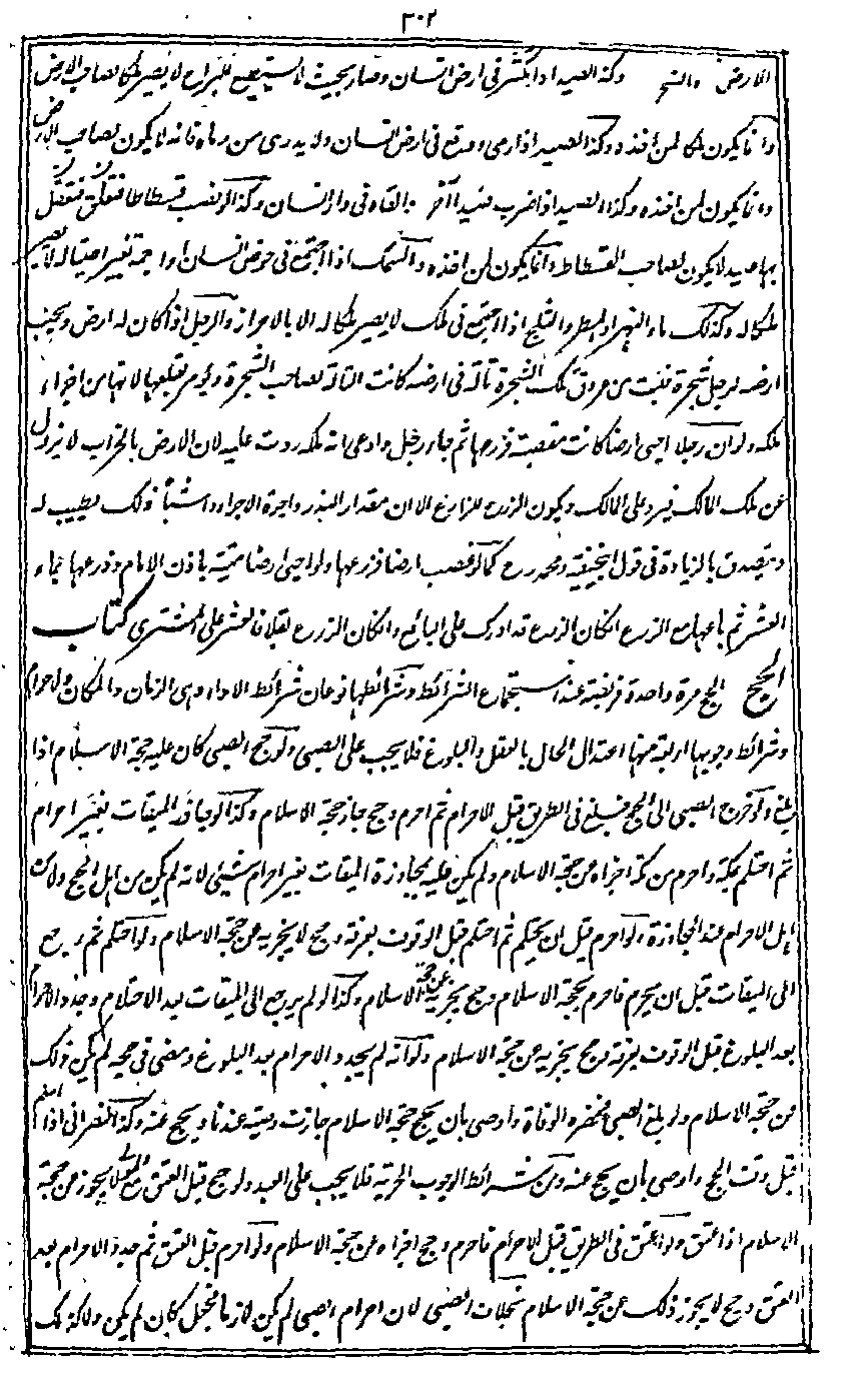 ٣٠٢
الارض والشجر وكذا الصيد اذا تكسر فى ارض انسان وصار بحيث لا يستطيع البراح لا يصير ملكا لصاحب الارض
وانما يكون ملكا لمن اخذه وكذا الصيد اذا رمى ووقع فى ارض انسان ولا يدرى من رماه فانه لا يكون لصاحب الارض
وانما يكون لمن اخذه وكذا الصيد اذا ضرب صيدا آخر فالقاه فى دار انسان وكذا لو نصب فسطاطا فتعلق فتعقل
بها صيد لا يكون لصاحب الفسطاط وانما يكون لمن اخذه والسمك اذا اجتمع فى حوض انسان او اجمة بغير احتياله لا يصير
ملكا له وكذلك ماء النهر او المطر والثلج اذا اجتمع فى ملك لا يصير ملكا له الا بالاحراز والرجل اذا كان له ارض وبجنب
ارضه لرجل شجرة فنبت من عروق تلك الشجرة تالة فى ارضه كانت التالة لصاحب الشجرة ويؤمر بقلعها لانها من اجزاء
ملكه ولو ان رجلا احيى ارضا كانت مقصبة فزرعها ثم جاء رجل وادعى انه ملكه ردت عليه لان الارض بالخراب لا يزول
عن ملك المالك فيرد على المالك ويكون الزرع للزارع الا ان مقدار البذر واجرة الاجراء واشباه ذلك يطيب له
ويتصدق بالزيادة فى قول ابى حنيفة ومحمد رح كما لو غصب ارضا فزرعها ولو احيى ارضا ميتة باذن الامام وزرعها بماء
العشر ثم باعها مع الزرع ان كان الزرع قد ادرك على البائع وان كان الزرع بقلا فالعشر على المشترى كتاب
الحج الحج مرة واحدة فريضة عند استجماع الشرائط وشرائطها نوعان شرائط الاداء وهى الزمان والمكان والاحرام
وشرائط وجوبها اربعة منها اعتدال الحال بالعقل والبلوغ فلا يجب على الصبى ولو حج الصبى كان عليه حجة الاسلام اذا
بلغ ولو خرج الصبى الى الحج فبلغ فى الطريق قبل الاحرام ثم احرم وحج جاز حجة الاسلام وكذا لو جاوز الميقات بغير احرام
ثم احتلم بمكة واحرم من مكة اجزاه عن حجة الاسلام ولم يكن عليه بمجاوزة الميقات بغير احرام شيئ لانه لم يكن من اهل الحج ولا من
اهل الاحرام عند المجاوزة ولو احرم قبل ان يحتلم ثم احتلم قبل الوقوف بعرفة وحج لا يجزيه عن حجة الاسلام ولو احتلم ثم رجع
الى الميقات قبل ان يحرم فاحرم بحجة الاسلام وحج يجزيه عن حجة الاسلام وكذا لو لم يرجع الى الميقات بعد الاحتلام وجدد الاحرام
بعد البلوغ قبل الوقوف بعرفة وحج يجزيه عن حجة الاسلام ولو انه لم يجدد الاحرام بعد البلوغ ومضى فى حجه لم يكن ذلك
عن حجة الاسلام ولو بلغ الصبى فحضره الوفاة واوصى بان يحج حجة الاسلام جازت وصيته عندنا ويحج عنه وكذا النصرانى اذا اسلم
قبل وقت الحج واوصى بان يحج عنه ومن شرائط الوجوب الحرية فلا يجب على العبد ولو حج قبل العتق مع المولى لا يجوز عن حجة
الاسلام اذا عتق ولو اعتق فى الطريق قبل الاحرام فاحرم وحج اجزاه عن حجة الاسلام ولو احرم قبل العتق ثم جدد الاحرام بعد
العتق وحج لا يجوز ذلك عن حجة الاسلام بخلاف الصبى لان احرام الصبى لم يكن لازما فجعل كان لم يكن ولا كذلك